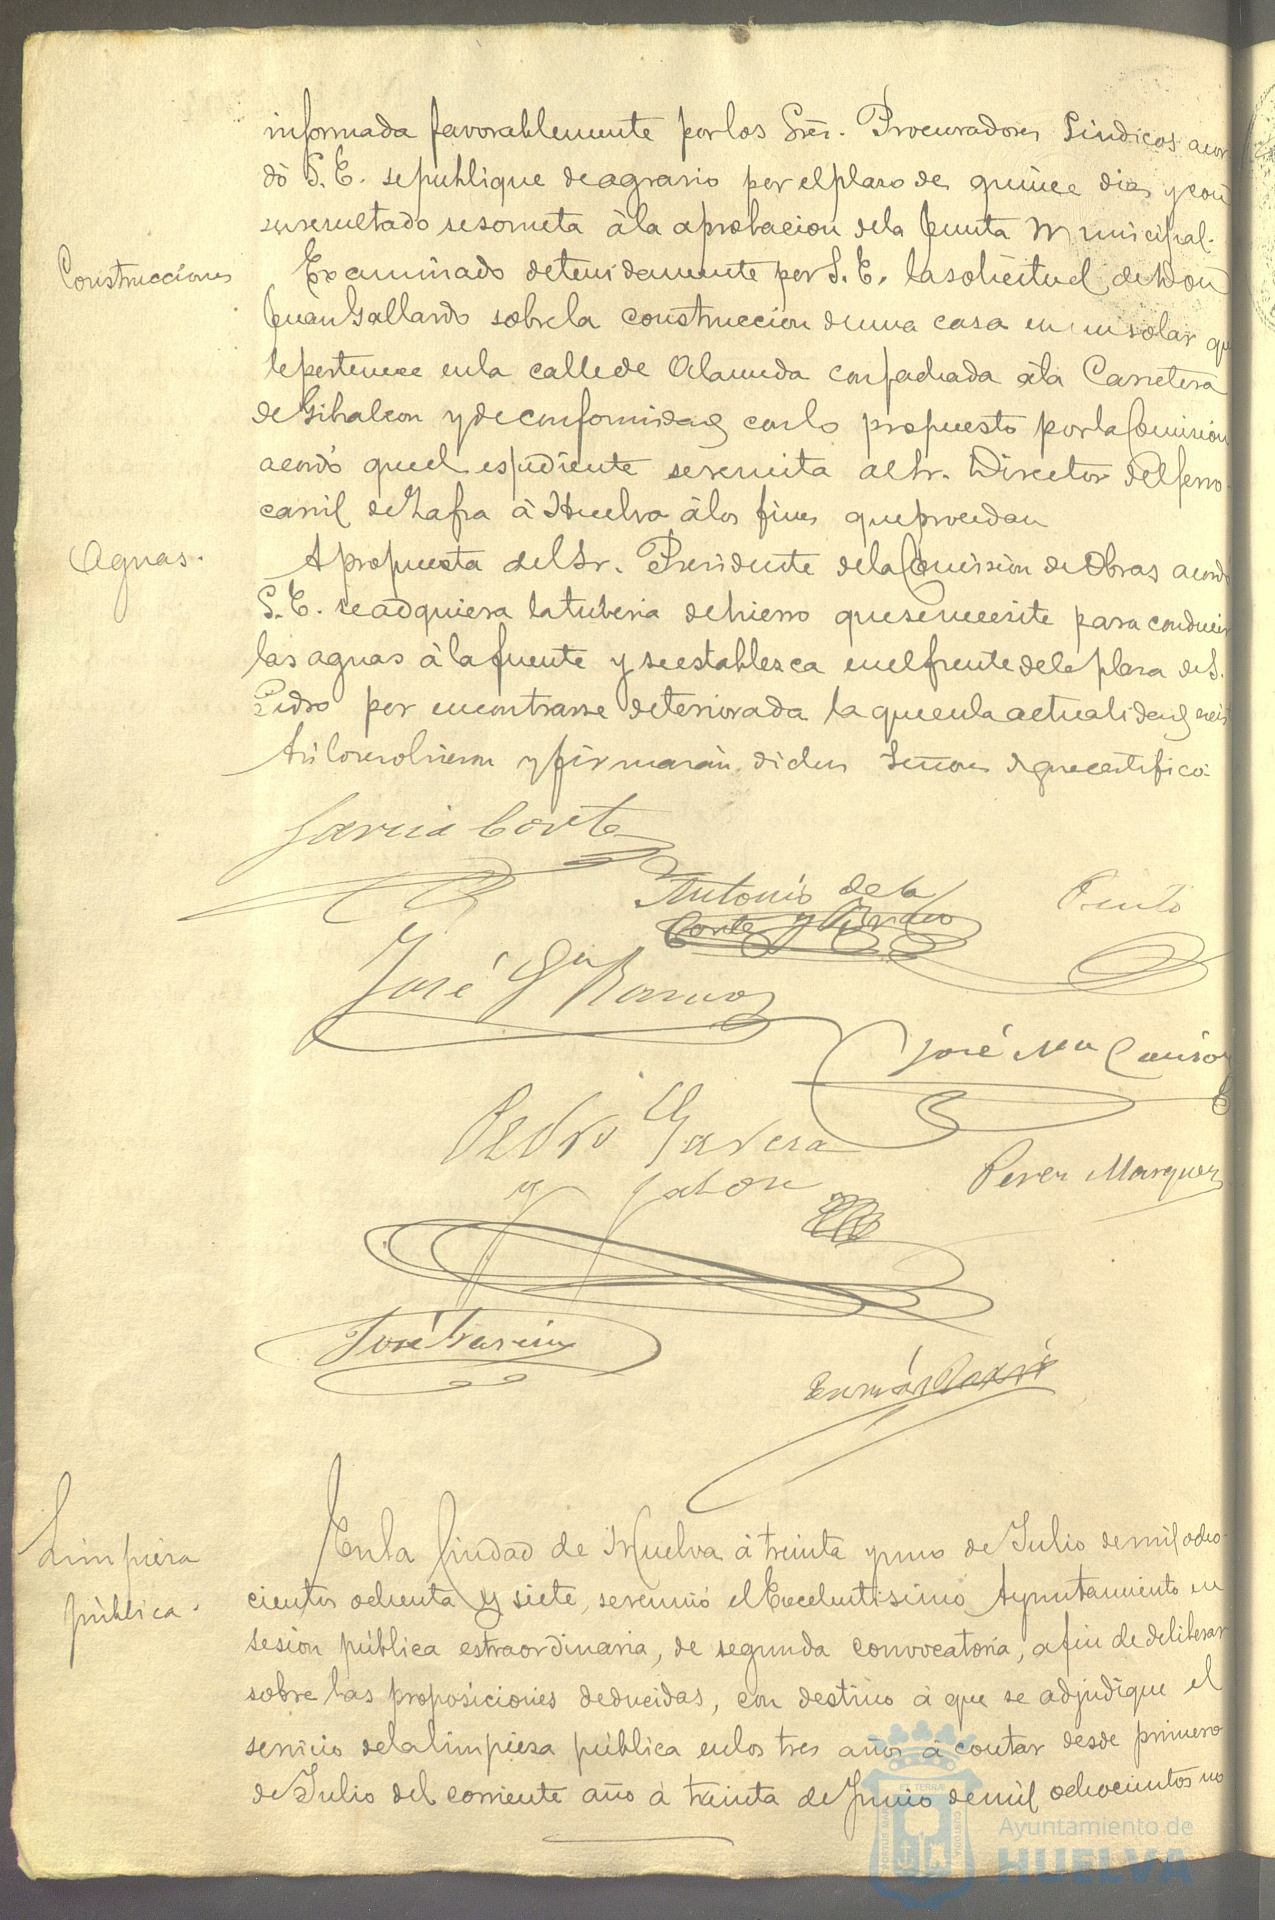 informada favorablemente por los Sres. Procuradores Sindicos acor
dó S. E. se publique de agrario por el plazo de quince dias y con
su resultado se someta à la aprobacion de la Junta Municipal.
Construcciones
Examinado detenidamente por S. E. la solicitud de Don
Juan Gallardo sobre la construccion de una casa en un solar qu
le pertenece en la calle de Alameda con fachada à la Carretera
de Gibraleon y de conformidad con lo propuesto por la Comision
acordó que el espediente se remita al Sr. Director del ferro-
carril de Zafra à Huelva à los fines que procedan
Aguas.
A propuesta del Sr. Presidente de la Comision de Obras acordó
S. E. se adquiera la tuberia de hierro que se necesite para conducir
las aguas à la fuente y se establezca en el frente de la plaza de S.
Pedro por encontrarse deteriorada la que en la actualidad
Asi lo resolvieron y firmarán dichos Señores de que certifico.
Garcia Cortes
Antonio de la
Corte y
Pinto
José Gª Ramos
José Mª
Pedro Garcia
y Jalon
Perez Marquez
José Garcia
Limpieza
pública.
En la Ciudad de Huelva á treinta y uno de Julio de mil ocho-
cientos ochenta y siete, se reunió el Excelentisimo Ayuntamiento en
sesión pública estraordinaria, de segunda convocatoria, a fin de deliberar
sobre las proposiciones deducidas, con destino á que se adjudique el
servicio de la limpieza pública en los tres años á contar desde primero
de Julio del corriente año á treinta de Junio de mil ochocientos no
Ayuntamiento de
HUELVA